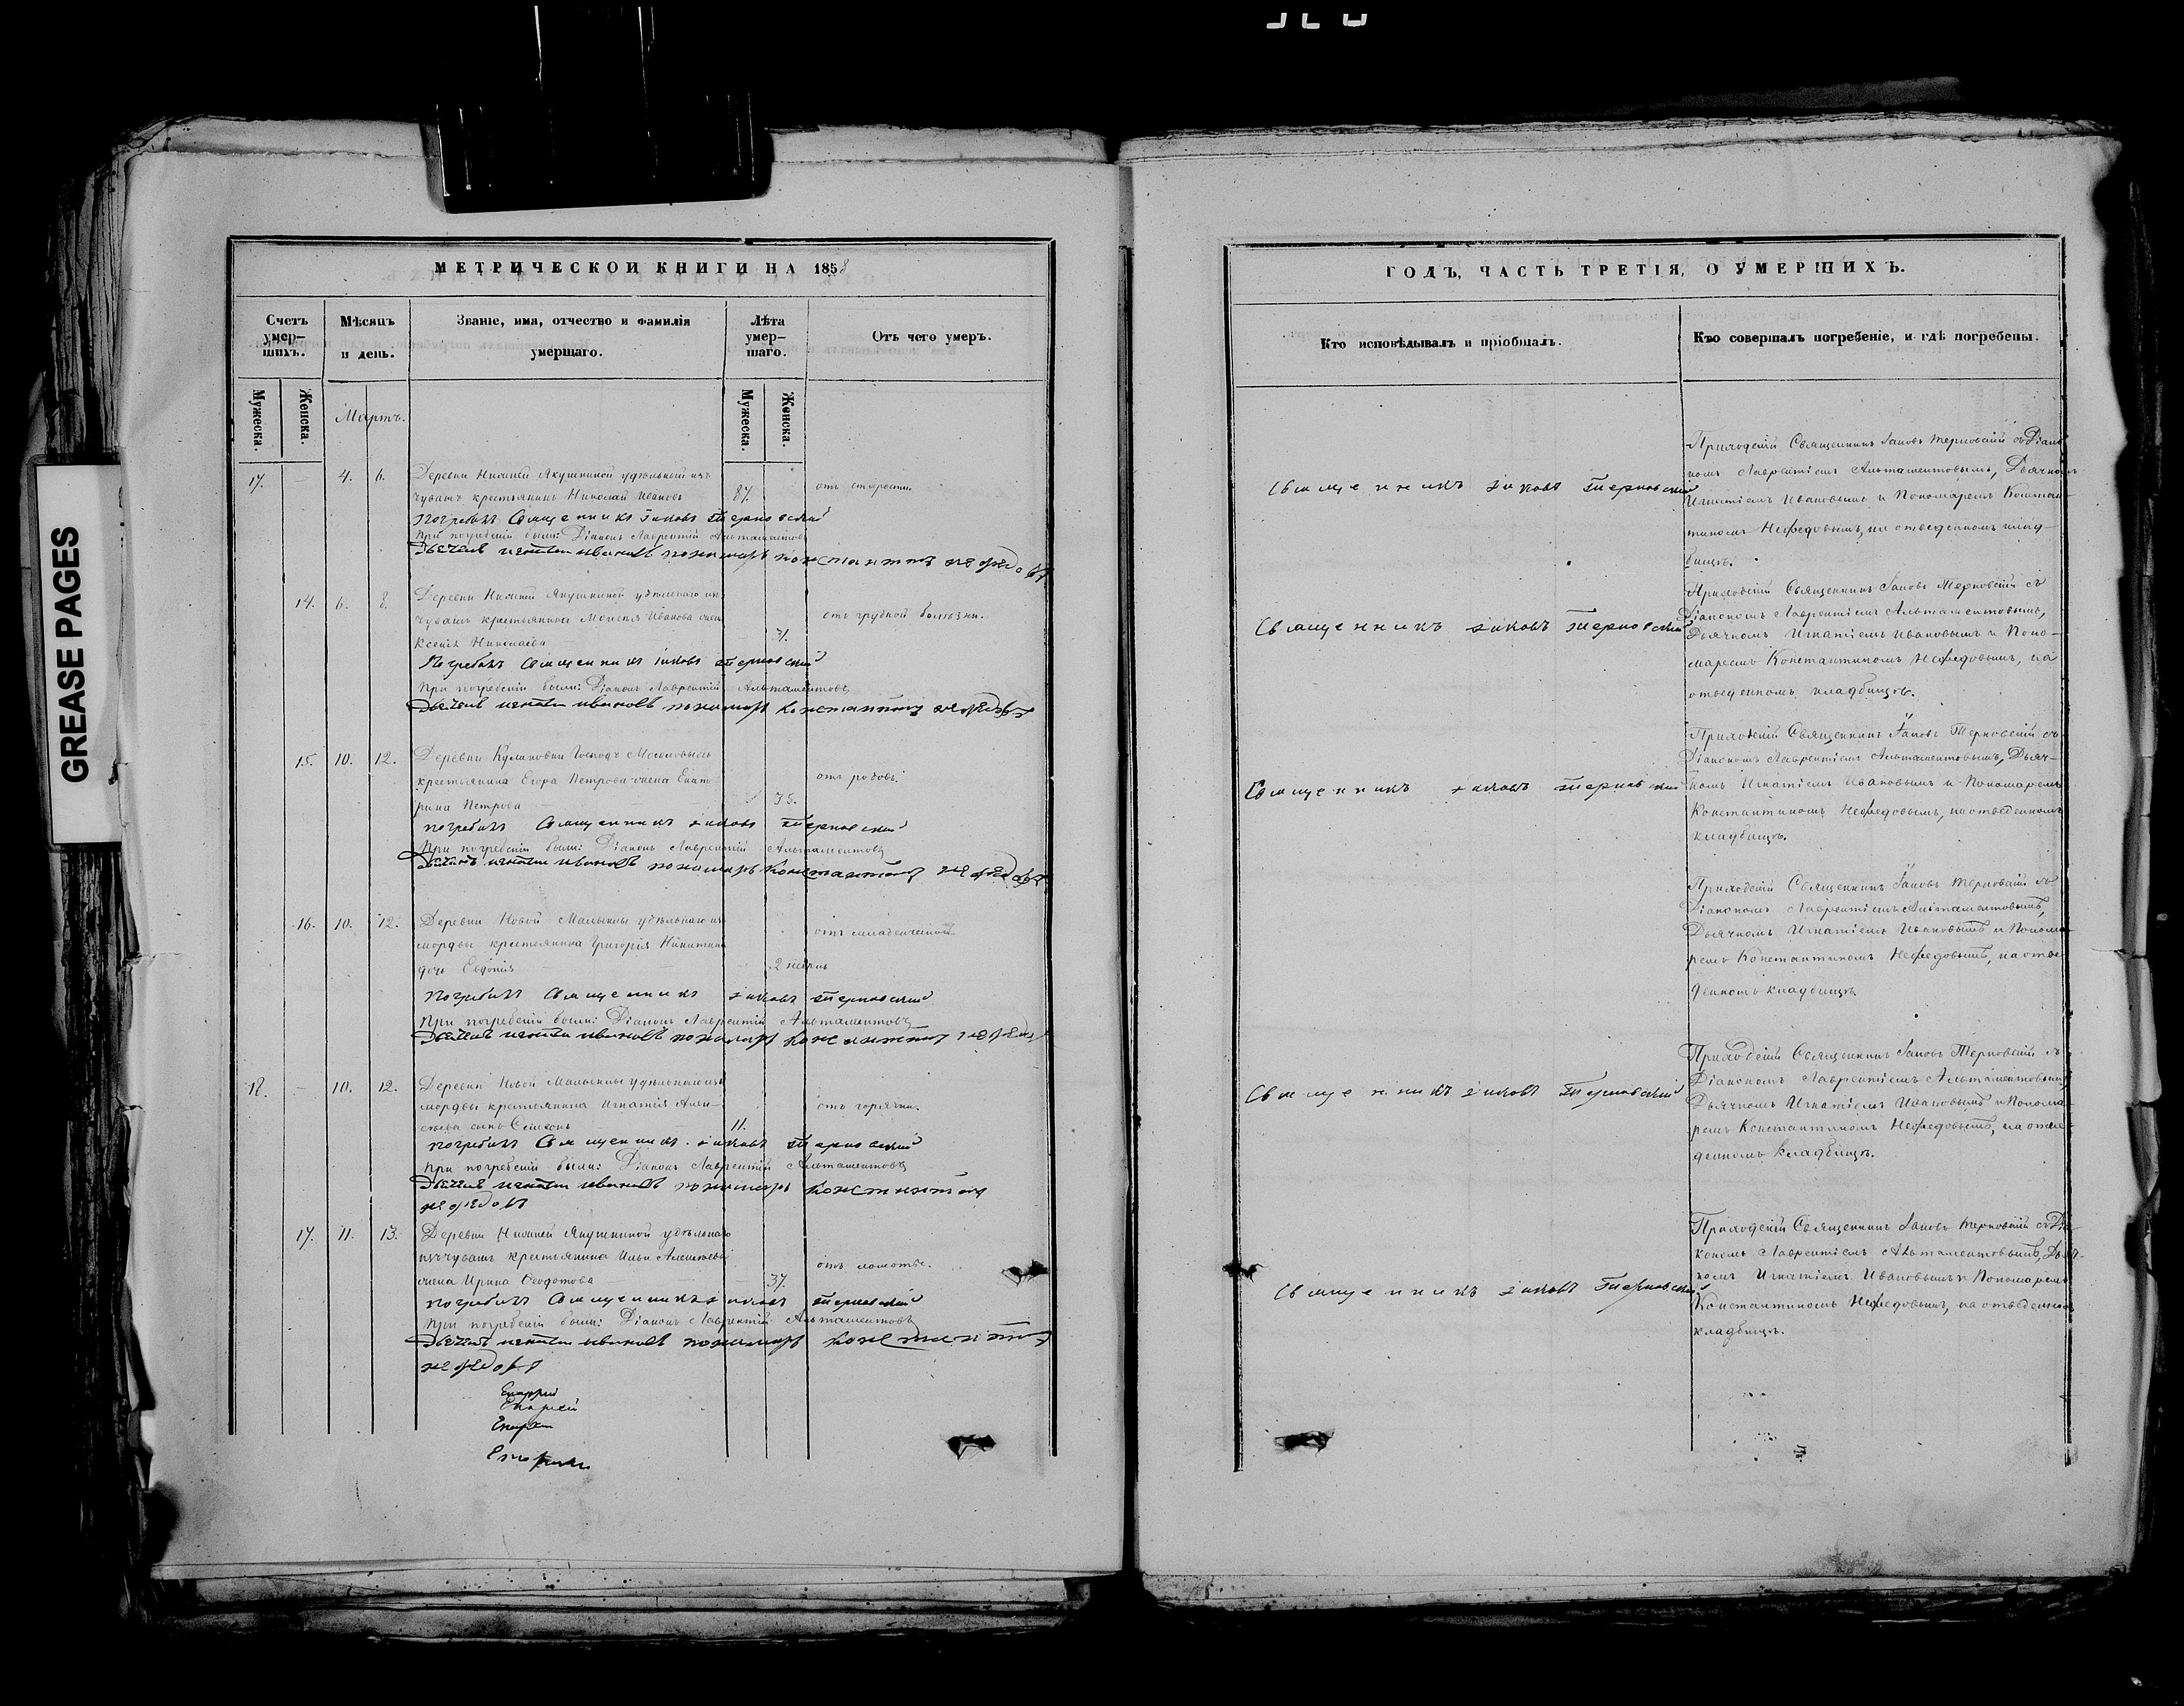 GREASE PAGES
МЕТРИЧЕСКОЙ КНИГИ НА 1858
Счетъ умер-
шихъ.
Мѣсяцъ
и день.
Званіе, имя, отчество и фамилія
умершаго.
Лѣта
умер-
шаго.
Отъ чего умеръ.
Мужеска.
Женска.
Мартъ.
Мужеска.
Женска.
17. 4. 6. Деревни Нижней Якушкиной удѣльный изъ
чувашъ крестьянинъ Николай Ивановъ 87. отъ старости.
Погребалъ Священникъ Іаковъ Терновский
При погребеніи были: Діаконъ Лаврентій Альтаментовъ
Дьячекъ Игнатий Ивановъ пономарь Константинъ Нефедовъ
14. 6. 8. Деревни Нижней Якушкиной удѣльнаго изъ
чувашъ крестьянина Моисея Иванова жена отъ грудной болѣзни.
Ксенія Николаева
Погребалъ Священникъ Іаковъ Терновский
При погребеніи были: Діаконъ Лаврентій Альтаментовъ
Дьячекъ Игнатий Ивановъ пономарь Константинъ Нефедовъ
15. 10. 12. Деревни Куликовки Господъ
крестьянина Егора Петрова жена Екате- отъ родовъ.
рина Петрова 35.
Погребалъ Священникъ Іаковъ Терновский
При погребеніи были: Діаконъ Лаврентій Альтаментовъ
Дьячекъ Игнатий Ивановъ пономарь Константинъ Нефедовъ
16. 10. 12. Деревни Новой Малыклы удѣльнаго изъ
мордвы крестьянина Григорія Никитина отъ младенческой
дочь Евдокія 2 недѣль
Погребалъ Священникъ Іаковъ Терновский
При погребеніи были: Діаконъ Лаврентій Альтаментовъ
Дьячекъ Игнатий Ивановъ пономарь Константинъ Нефедовъ
18. 10. 12. Деревни Новой Малыклы удѣльнаго изъ
мордвы крестьянина Игнатія Але- отъ горячки.
сынъ Семенъ 11.
Погребалъ Священникъ Іаковъ Терновский
При погребеніи были: Діаконъ Лаврентій Альтаментовъ
Дьячекъ Игнатий Ивановъ пономарь Константинъ
Нефедовъ
17. 11. 13. Деревни Нижней Якушкиной удѣльнаго
изъ чувашъ крестьянина Ильи Алексѣева отъ ломоты.
жена Ирина Ѳеодотова 37.
Погребалъ Священникъ Іаковъ Терновский
При погребеніи были: Діаконъ Лаврентій Альтаментовъ
Дьячекъ Игнатий Ивановъ пономарь Константинъ
Нефедовъ
ГОДЪ, ЧАСТЬ ТРЕТІЯ, О УМЕРШИХЪ.
Кто исповѣдывалъ и пріобщалъ.
Кто совершалъ погребеніе, и гдѣ погребены.
Священникъ Іаковъ Терновский
Приходскій Священникъ Іаковъ Терновскій съ Діако-
номъ Лаврентіемъ Альтаментовымъ, Дьячкомъ
Игнатіемъ Ивановымъ и Пономаремъ Констан-
тиномъ Нефедовымъ, на отведенномъ клад-
бищѣ.
Священникъ Іаковъ Терновский
Приходскій Священникъ Іаковъ Терновскій съ
Діакономъ Лаврентіемъ Альтаментовымъ,
Дьячкомъ Игнатіемъ Ивановымъ и Поно-
маремъ Константиномъ Нефедовымъ, на
отведенномъ кладбищѣ.
Священникъ Іаковъ Терновский
Приходскій Священникъ Іаковъ Терновскій съ
Діакономъ Лаврентіемъ Альтаментовымъ, Дьяч-
комъ Игнатіемъ Ивановымъ и Пономаремъ
Константиномъ Нефедовымъ, на отведенномъ
кладбищѣ.
Приходскій Священникъ Іаковъ Терновскій съ
Діакономъ Лаврентіемъ Альтаментовымъ,
Дьячкомъ Игнатіемъ Ивановымъ и Понома-
ремъ Константиномъ Нефедовымъ, на отве-
денномъ кладбищѣ
Священникъ Іаковъ Терновский
Приходскій Священникъ Іаковъ Терновскій съ
Діакономъ Лаврентіемъ Альтаментовымъ,
Дьячкомъ Игнатіемъ Ивановымъ и Понома-
ремъ Константиномъ Нефедовымъ, на отве-
денномъ кладбищѣ.
Священникъ Іаковъ Терновский
Приходскій Священникъ Іаковъ Терновскій съ Діа-
кономъ Лаврентіемъ Альтаментовымъ, Дьяч-
комъ Игнатіемъ Ивановымъ и Пономаремъ
Константиномъ Нефедовымъ, на отведенномъ
кладбищѣ.